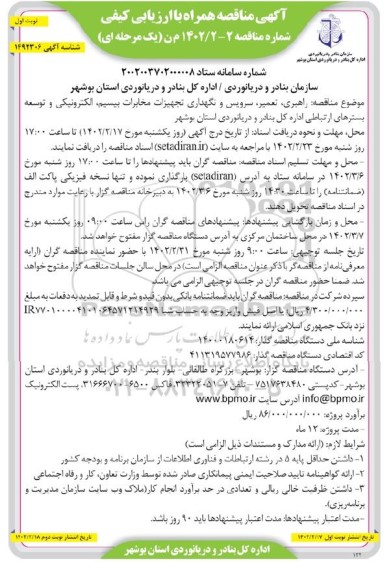 نوبت اول
آگهی مناقصه همراه با ارزیابی کیفی
شماره مناقصه ۲-۱۴۰۲/۲ م ن (یک مرحله ای)
شناسه آگهی ۱۴۹۲۳۰۶
سازمان بنادر و دریانوردی
اداره کل بنادر و دریانوردی استان بوشهر
شماره سامانه ستاد ۲۰۰۲۰۰۳۷۰۲۰۰۰۰۰۸
سازمان بنادر و دریانوردی / اداره کل بنادر و دریانوردی استان بوشهر
موضوع مناقصه: راهبری، تعمیر، سرویس و نگهداری تجهیزات مخابرات بیسیم، الکترونیکی و توسعه
بسترهای ارتباطی اداره کل بنادر و دریانوردی استان بوشهر
محل، مهلت و نحوه دریافت اسناد: از تاریخ درج آگهی (روز یکشنبه مورخ ۱۴۰۲/۲/۱۷) تا ساعت ۱۷:۰۰
روز مورخ ۱۴۰۲/۲/۲۳ با مراجعه به سایت (setadiran.ir) اسناد مناقصه را دریافت نمایند.
- محل و مهلت تسلیم اسناد مناقصه: مناقصه گران باید پیشنهادها را تا ساعت ۱۷:۰۰ روز شنبه مورخ
۱۴۰۲/۳/۶ در سامانه ستاد به آدرس (setadiran) بارگذاری نموده و تنها نسخه فیزیکی پاکت الف
(ضمانتنامه) را تا ساعت ۱۴:۳۰ روز شنبه مورخ ۱۴۰۲/۳/۶ به دبیرخانه مناقصه گزار با رعایت موارد مندرج
در اسناد مناقصه تحویل دهند.
- محل و زمان بازگشایی پیشنهادها: پیشنهادهای مناقصه گران راس ساعت ۰۹:۰۰ روز یکشنبه مورخ
۱۴۰۲/۳/۷ در محل ساختمان مرکزی به آدرس دستگاه مناقصه گزار مفتوح خواهد شد.
تاریخ جلسه توجیهی: ساعت ۹:۰۰ روز شنبه مورخ ۱۴۰۲/۲/۳۱ با حضور نماینده مناقصه گران (ارایه
معرفی نامه از مناقصه گر با ذکر عنوان مناقصه الزامی است) در محل سالن جلسات مناقصه گزار مفتوح خواهد
شد. ضمنا حضور مناقصه گران در جلسه توجیهی الزامی می باشد
سپرده شرکت در مناقصه: مناقصه گران باید ضمانتنامه بانکی بدون قید و شرط و قابل تمدید به دفعات به مبلغ
۴/۳۰۰/۰۰۰/۰۰۰ ریال یا اصل فیش واریز وجه به حساب شبا
نزد بانک جمهوری اسلامی ارائه نمایند.
شناسه ملی دستگاه مناقصه گذار: ۱۴۰۰۰۱۸۰۶۱۴
کد اقتصادی دستگاه مناقصه گذار: ۴۱۱۳۱۹۵۷۷۹۸۶
- آدرس دستگاه مناقصه گزار: بوشهر- بزرگراه طالقانی- بلوار بندر- اداره کل بنادر و دریانوردی استان
بوشهر- کدپستی: ۷۵۱۷۶۳۸۴۸۰ - تلفن پست الکترونیک
info@bpmo.ir آدرس سایت www.bpmo.ir
برآورد پروژه: ۸۶/۰۰۰/۰۰۰/۰۰۰ ریال
- مدت پروژه: ۱۲ ماه
شرایط لازم: (ارائه مدارک و مستندات ذیل الزامی است)
۱- داشتن حداقل پایه ۵ در رشته ارتباطات و فناوری اطلاعات از سازمان برنامه و بودجه کشور
۲- ارائه گواهینامه تایید صلاحیت ایمنی پیمانکاری صادر شده توسط وزارت تعاون، کار و رفاه اجتماعی
۳- داشتن ظرفیت خالی ریالی و تعدادی در حد برآورد انجام کار (ملاک وب سایت سازمان مدیریت و
برنامه ریزی).
-مدت اعتبار پیشنهادها: مدت اعتبار پیشنهادها باید ۹۰ روز باشد.
تاریخ انتشار نوبت اول: ۱۴۰۲/۲/۱۷
تاریخ انتشار نوبت دوم: ۱۴۰۲/۲/۱۸
اداره کل بنادر و دریانوردی استان بوشهر